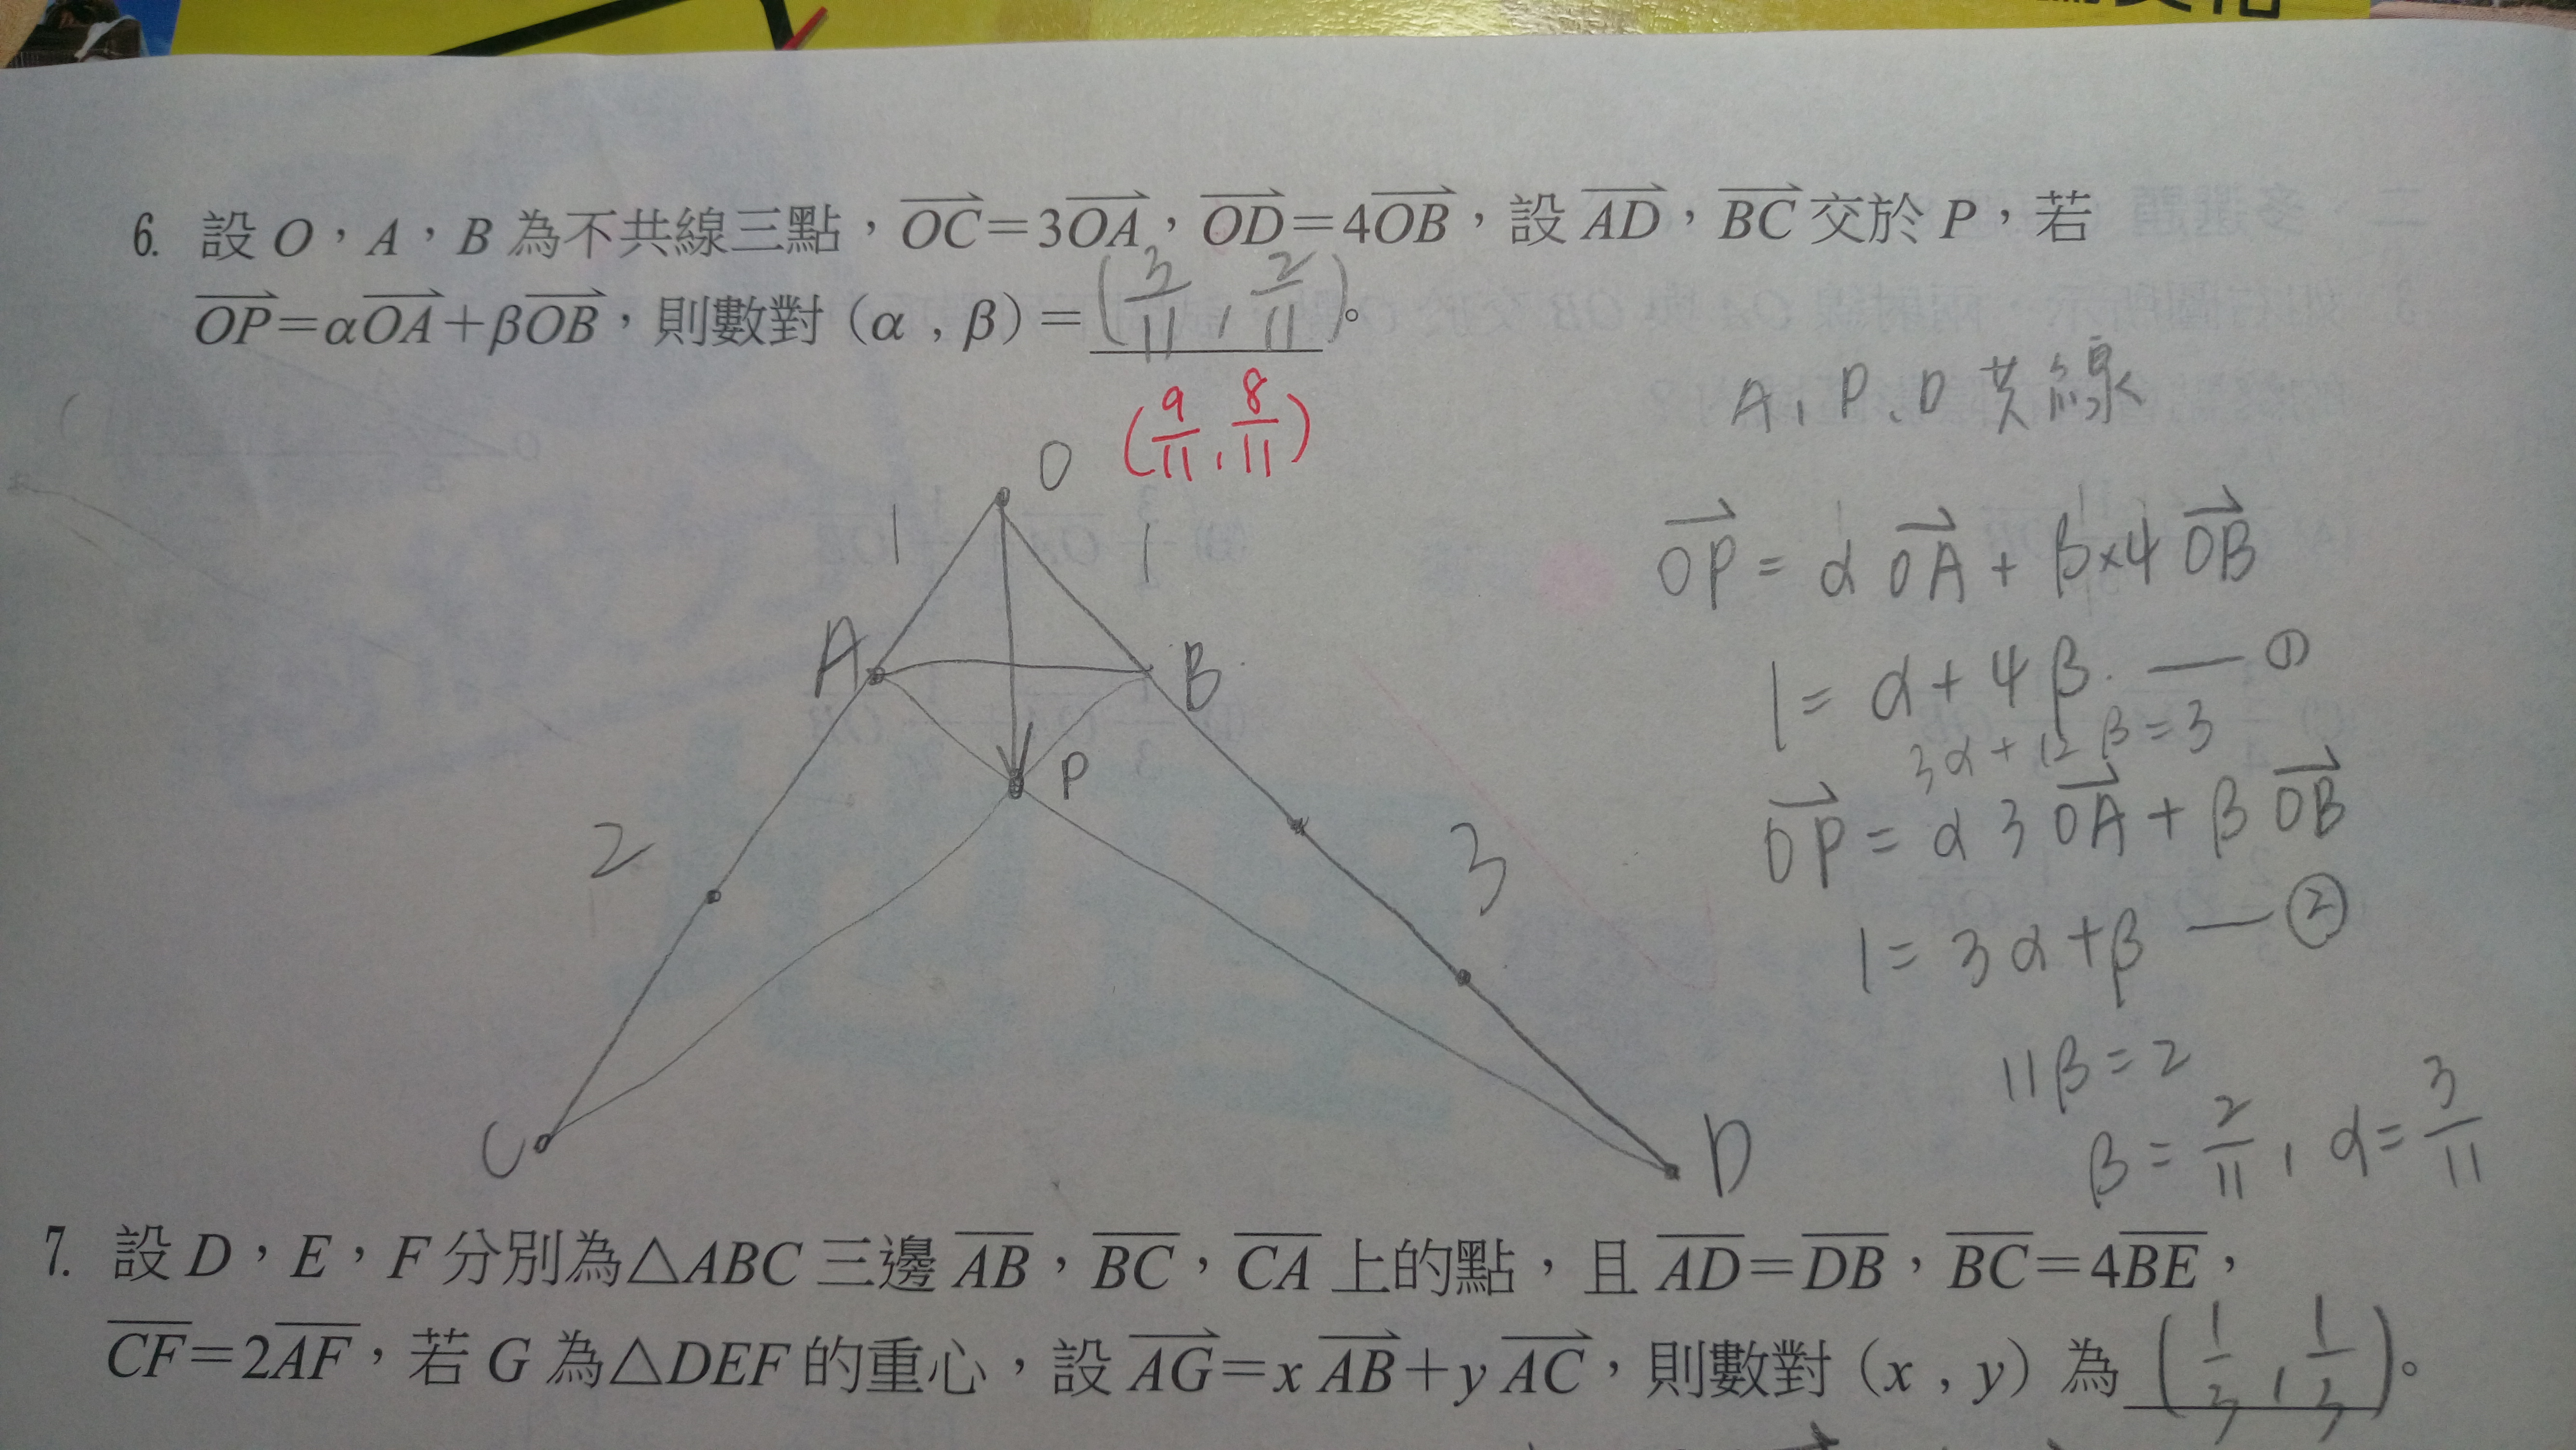 6. 設 O，A，B 為不共線三點，\overrightarrow{OC}=3\overrightarrow{OA}，\overrightarrow{OD}=4\overrightarrow{OB}，設 \overrightarrow{AD}，\overrightarrow{BC} 交於 P，若
\overrightarrow{OP}=α\overrightarrow{OA}+β\overrightarrow{OB}，則數對（α , β）= (3/11 , 2/11)。
(9/11 , 8/11)
A、P、D 共線
\overrightarrow{OP} = α\overrightarrow{OA} + β×4\overrightarrow{OB}
1 = α + 4β. — ①
3α + 12β = 3
\overrightarrow{OP} = α3\overrightarrow{OA} + β\overrightarrow{OB}
1 = 3α + β — ②
11β = 2
β = 2/11 , α = 3/11
O
1
1
A
B
P
2
3
C
D
7. 設 D，E，F 分別為△ABC 三邊 \overline{AB}，\overline{BC}，\overline{CA} 上的點，且 \overline{AD}=\overline{DB}，\overline{BC}=4\overline{BE}，
\overline{CF}=2\overline{AF}，若 G 為△DEF 的重心，設 \overrightarrow{AG}=x\overrightarrow{AB}+y\overrightarrow{AC}，則數對（x , y）為 (1/3 , 1/3)。